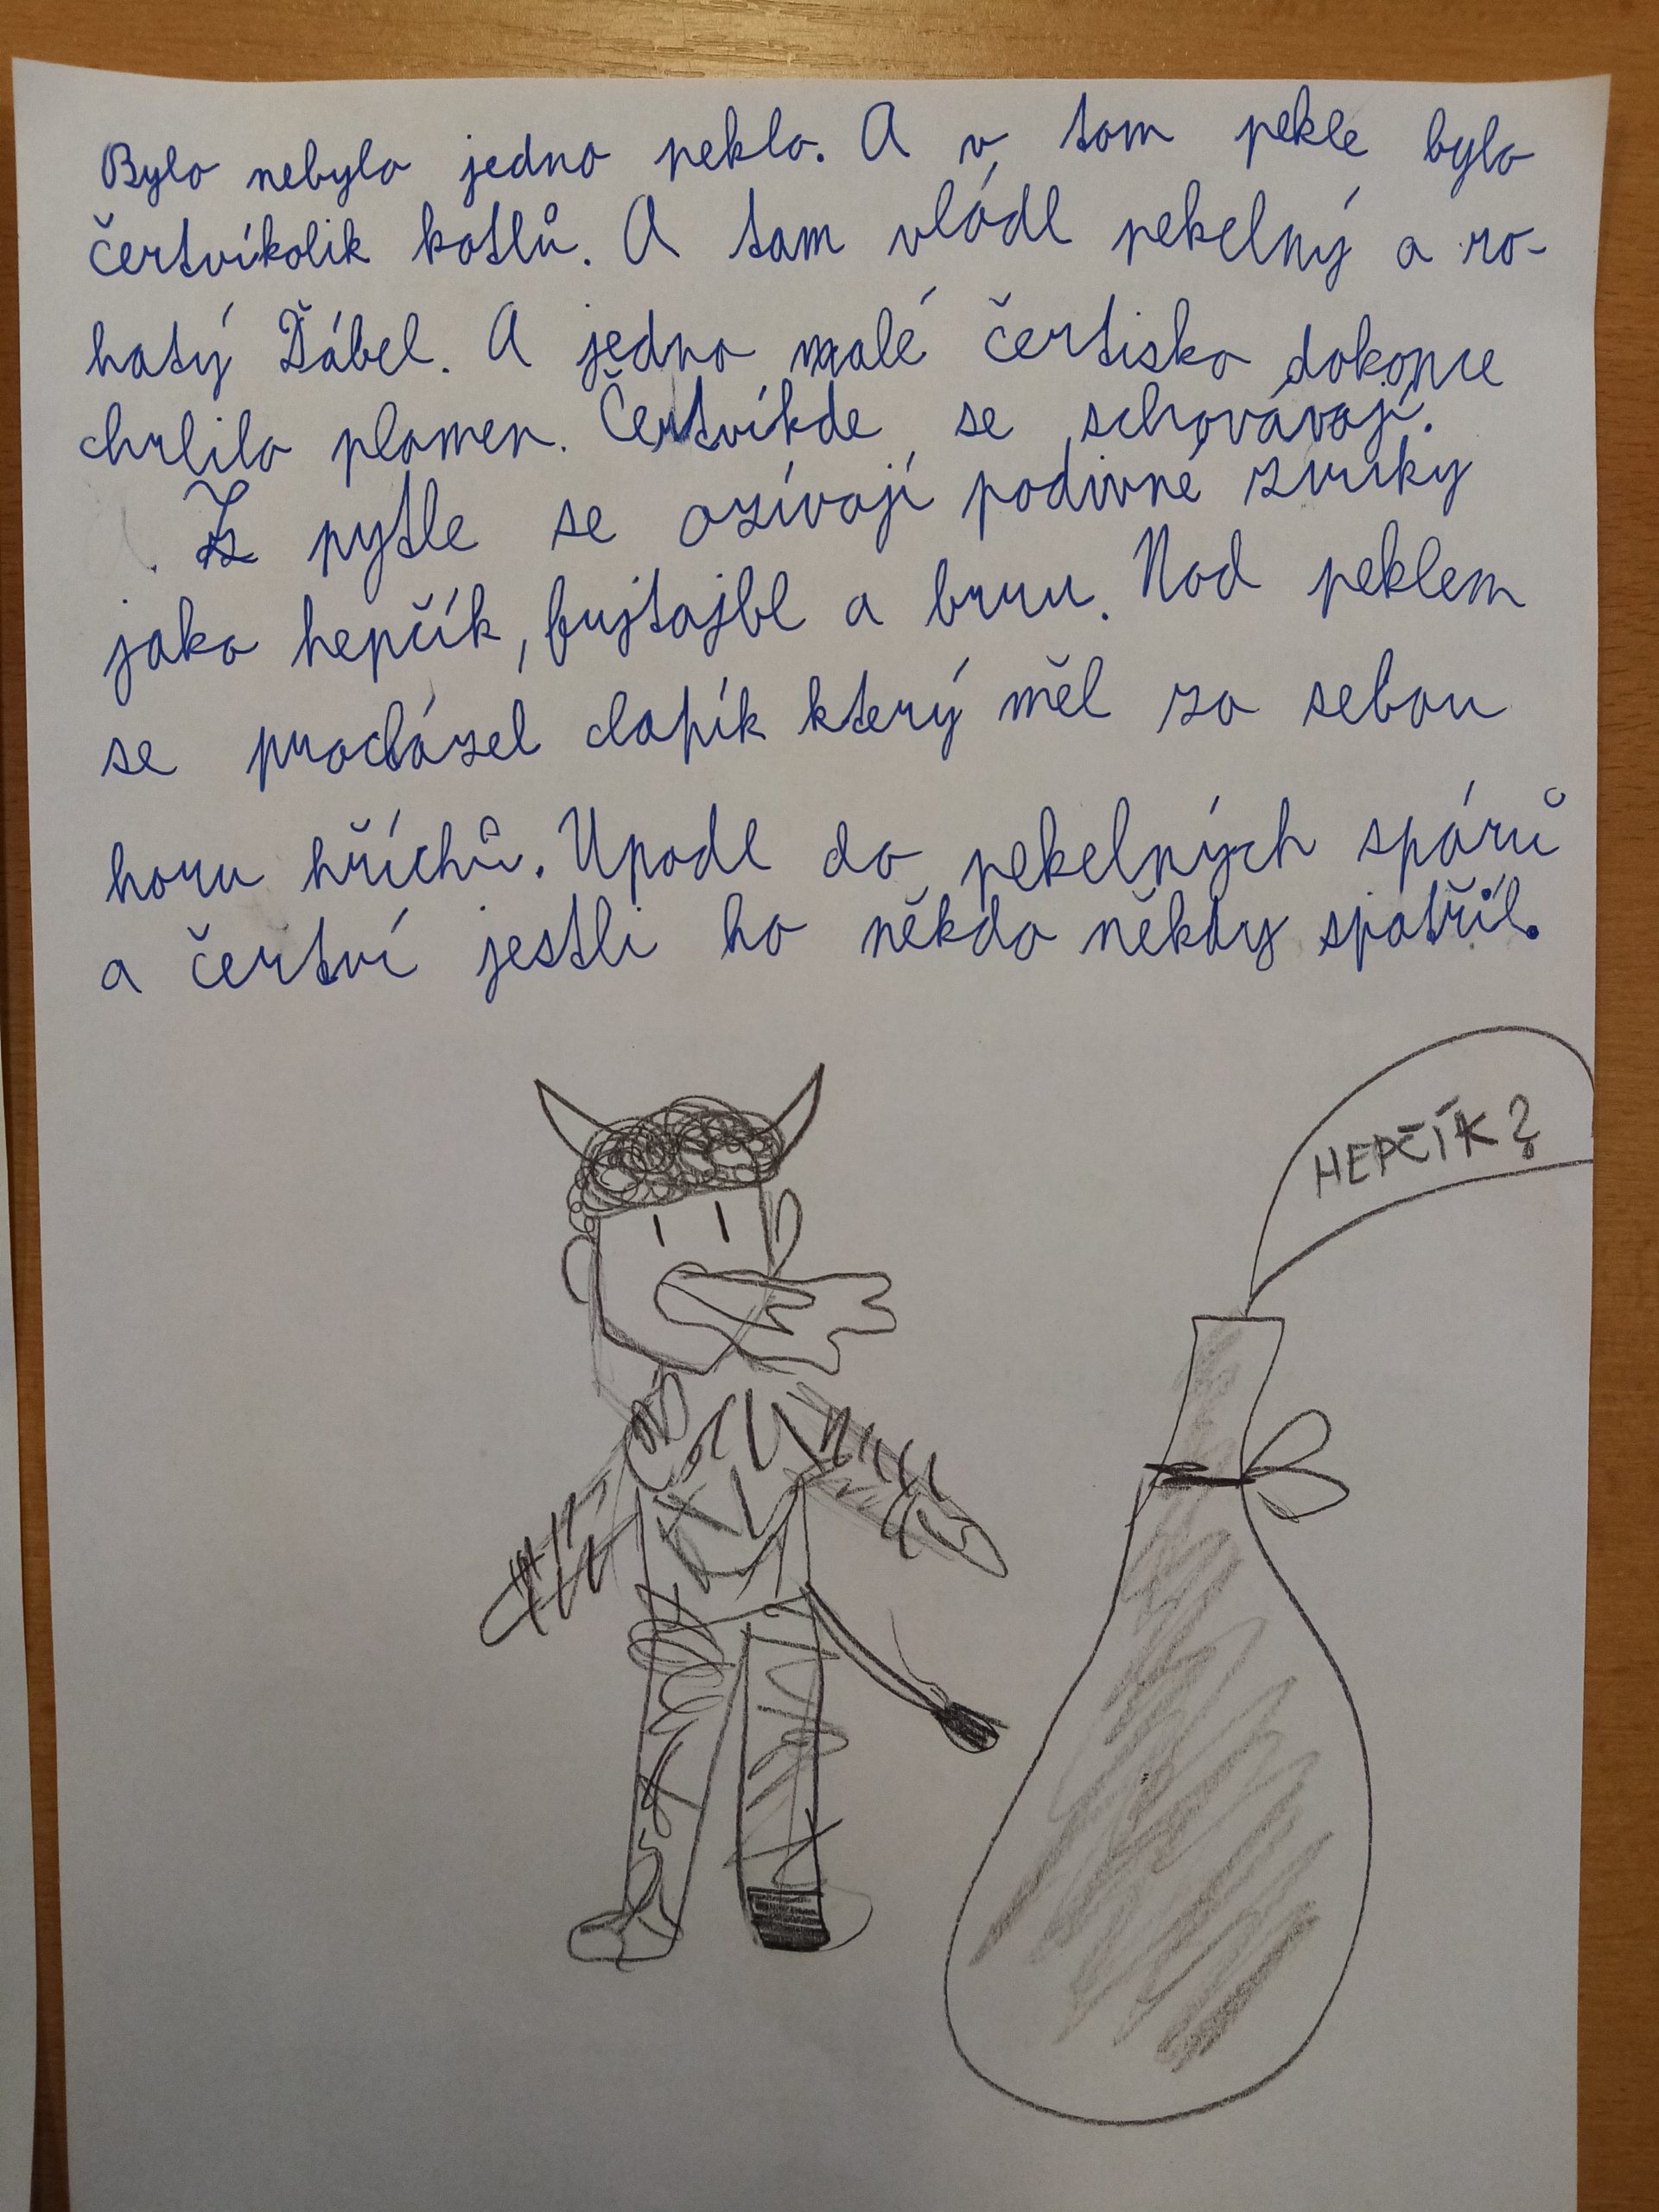 Bylo nebylo jedno peklo. A v tom pekle bylo
čertvíkolik kotlů. A tam vládl pekelný a ro-
hatý Ďábel. A jedno malé čertisko dokonce
chrlilo plamen. Čertvíkde se schovávají.
Z pytle se ozívají podivné zvuky
jako hepčík, fujtajbl a brrr. Nad peklem
se procházel chlapík který měl za sebou
horu hříchů. Upadl do pekelných spárů
a čertví jestli ho někdo někdy spatřil.
HEPČÍK?